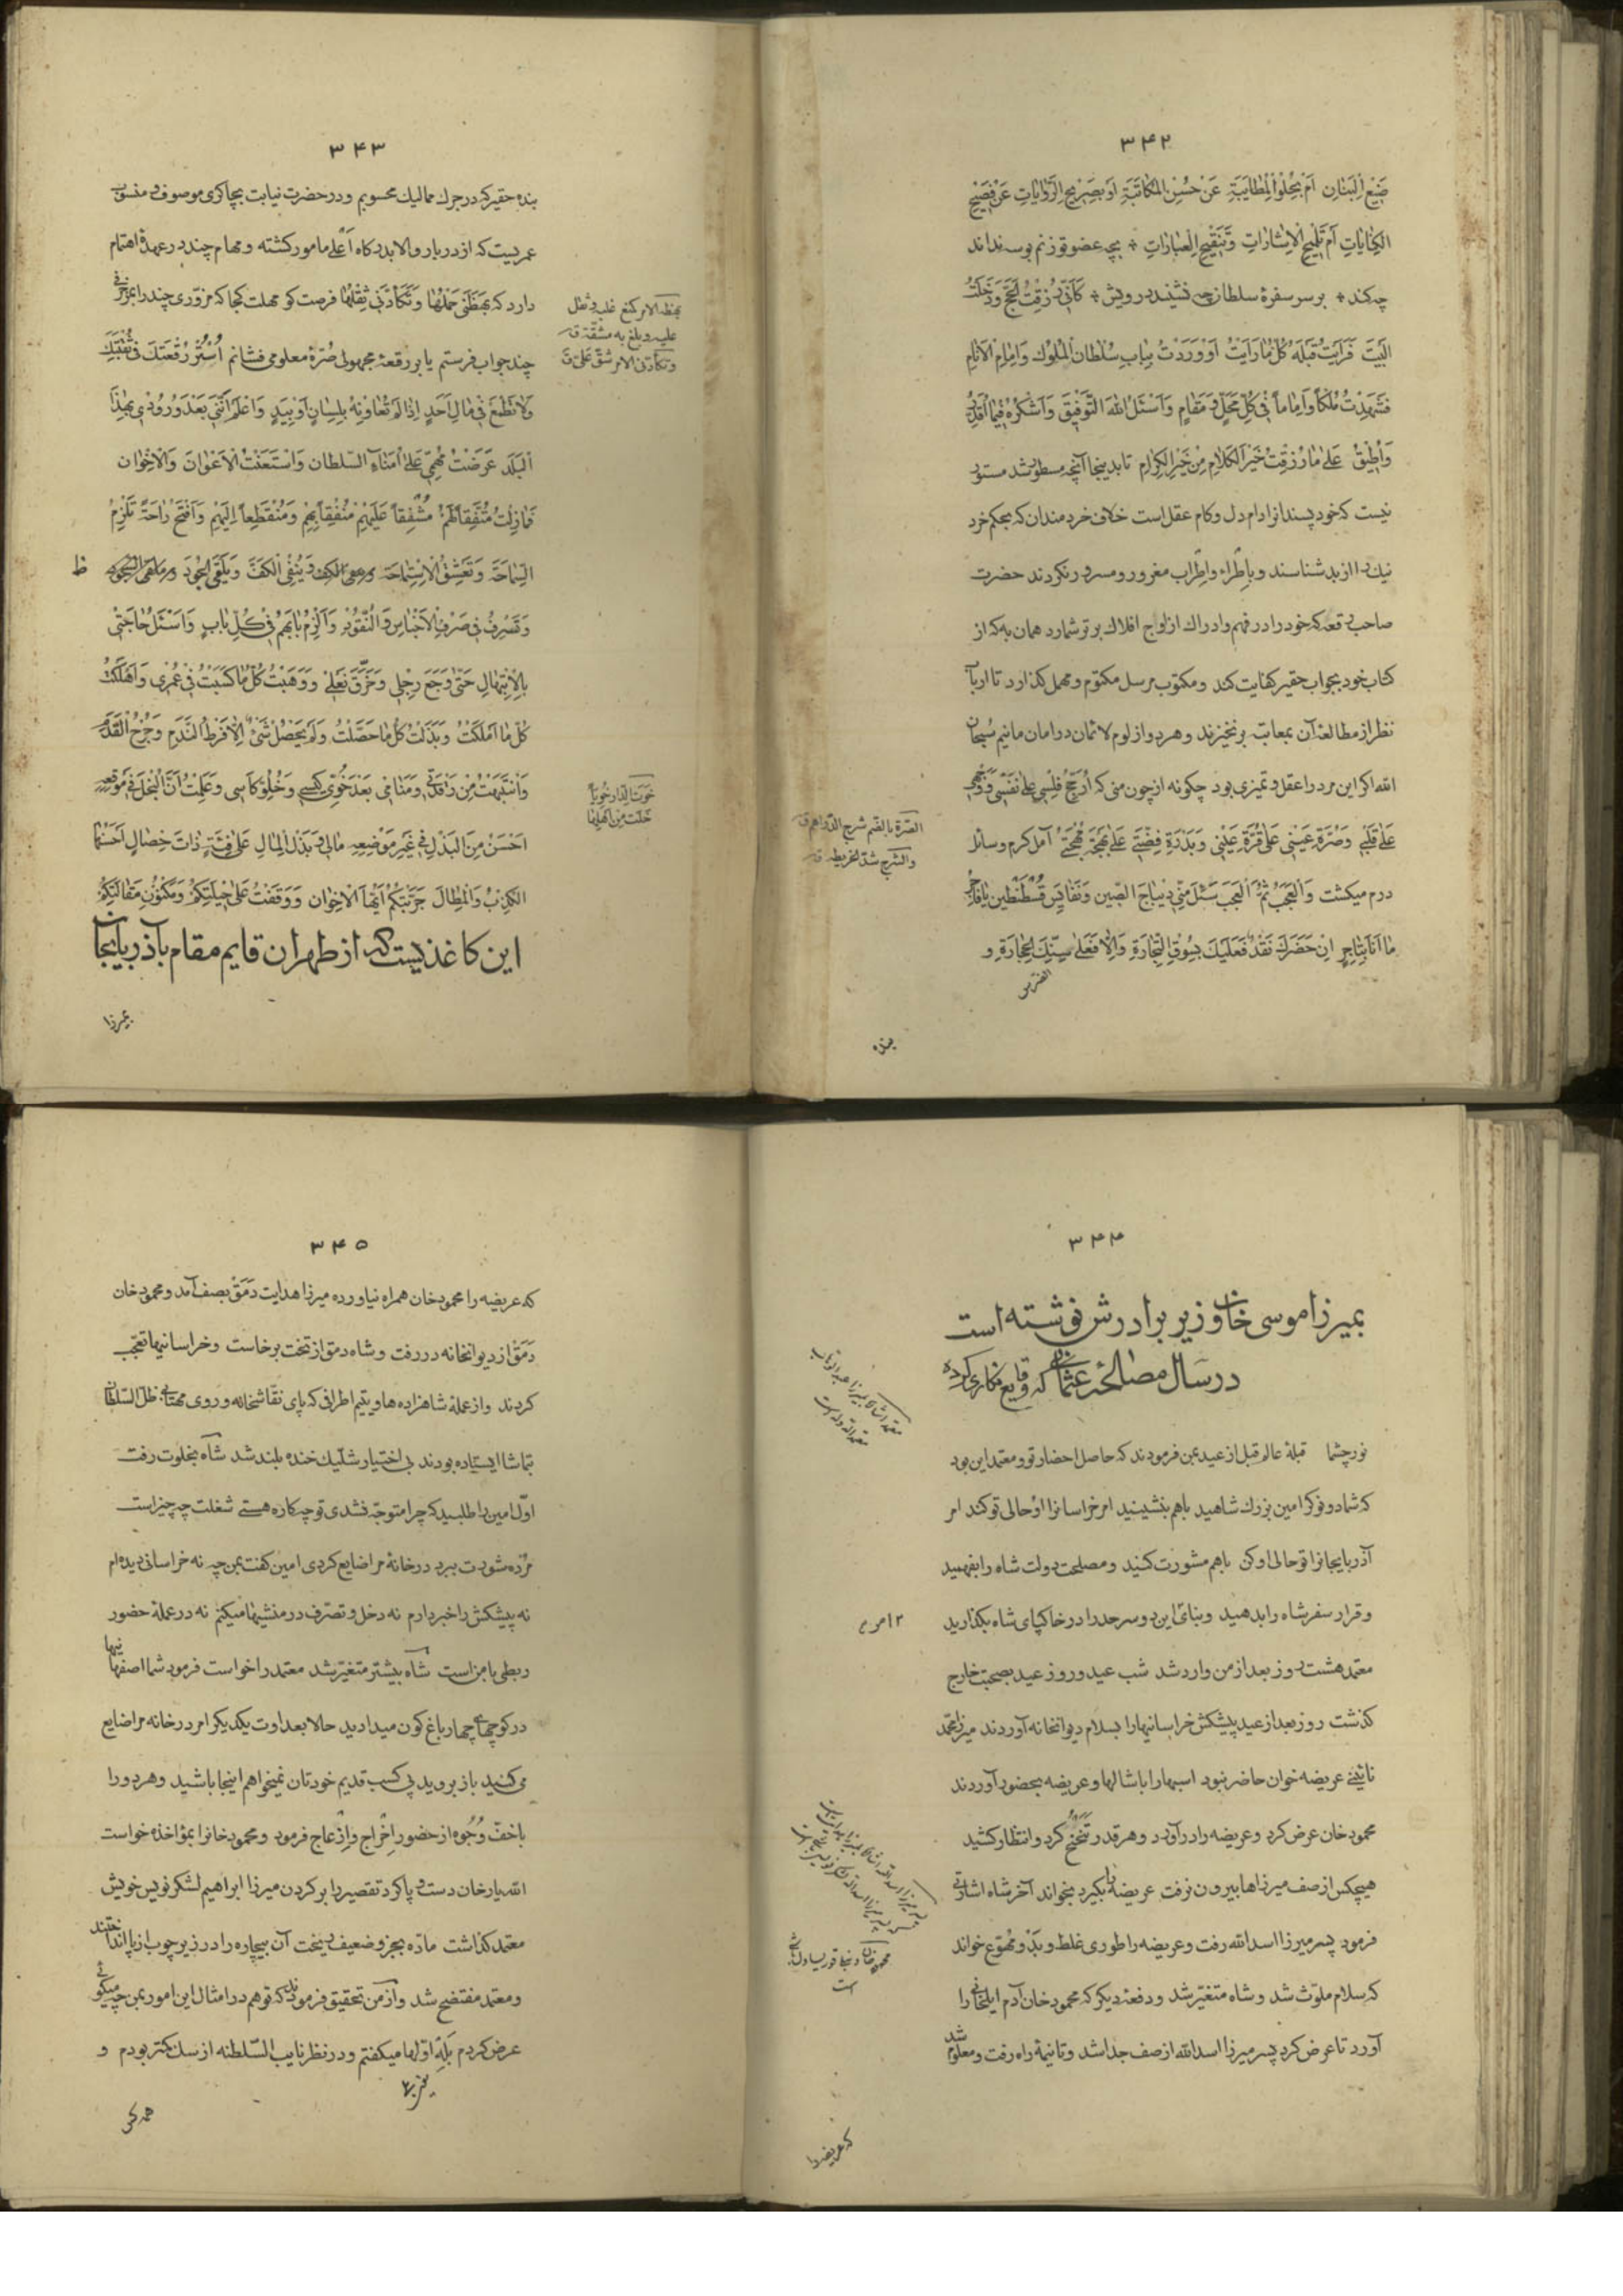 ۳۴۲
ضَیْعِ الْبَنَانِ اَمْ یَحْلُوالْمُطَایَبَةِ عَنْ حُسْنِ الْمُکَاتَبَةِ اَوْ بِصَرِیحِ الرِّوَایَاتِ عَنْ فَصِیحِ
الکِنَایَاتِ اَمْ تَلْمِیحِ الْاِشَارَاتِ وَتَنْقِیحِ الْعِبَارَاتِ * بچه عضو تو زنم بوسه نداند
چه کند * بر سر سفرهٔ سلطان چه نشیند درویش * کَاَنِّی رُزِقْتُ الْحَجَّ وَدَخَلْتُ
الْبَیْتَ فَرَاَیْتُ قَبْلَهُ کُلَّ مَا رَاَیْتُ اَوْ وَرَدْتُ بِبَابِ سُلْطَانِ الْمُلُوكِ وَاِمَامِ الْاَنَامِ
فَشَهِدْتُ مُلْکاً وَاِمَاماً فِی کُلِّ مَحَلٍّ وَمَقَامٍ وَاَسْئَلُ اللهَ التَّوْفِیقَ وَاَشْکُرُهُ فِیمَا اُقَدِّرُ
وَاُطِیقُ عَلیٰ مَا رُزِقْتُ خَیْرَ الْکَلَامِ مِنْ خَیْرِ الْکِرَامِ تا بدینجا آنچه مسطور شد مستور
نیست که خود پسندانرا دام دل و کام عقل است خلاف خردمندان که بحکم خرد
نیك را از بد شناسند و باِطْرَاء و اِطْرَاب مغرور و مسرور نکردند حضرت
صاحب رقعه که خود را در فهم و ادراك از اوج افلاك برتر شمارد همان به که از
کتاب خود بجواب حقیر کفایت کند و مکتوب مرسل مکتوم و مهمل کذارد تا ارباب
نظر از مطالعهٔ آن بمعایب بر نخیزند و هر دو از لوم لائمان در امان مانیم سُبحان
الله اکر این مرد را عقل و تمیزی بود چکونه از چون منی که اُرَجِّحُ فَلْسِی عَلیٰ نَفْسِی وَ
عَلیٰ قَلْبِی وَصُرَّةَ عَیْنِی عَلیٰ قُرَّةِ عَیْنِی وَبَدْرَةَ فِضَّتِی عَلیٰ بَهْجَةِ مُهْجَتِی آمل کرم و سائل
درم میکشت وَالْعَجَبُ ثُمَّ الْعَجَبُ سَئَلَ مِنِّی دِیبَاجَ الصِّینِ وَنَفَایِسَ قُسْطَنْطِینَ
مَا اَنَا بِتَاجِرٍ اِنْ حَضَرَكَ نَقْدٌ فَعَلَیْكَ بِسُوقِ التِّجَارَةِ وَاِلَّا فَعَلیٰ سِنِّكَ الْحِجَارَةِ و
الصُرّة بالضم شرج الدّراهم ق
والشرج شدّ الخریطه ق
بنده
۳۴۳
بنده حقیر که در جرك ممالیك محسوبم و در حضرت نیابت بچاکری موصوف و منسوب
عمریست که از دربار والا بدرکاه اَعْلیٰ مامور کشته و مهام چند در عهدهٔ اهتمام
دارد که بَهَظَنِی حَمْلُهَا وَتَکَاَّدَنِی ثِقْلُهَا فرصت کو مهلت کجا که مزوّری چند را بمزخرفی
چند جواب فرستم یا بر رقعهٔ مجهولی صُرّهٔ معلومی فشانم اُسْتُرْ رُقْعَتَكَ فِی
وَلَا تَطْمَعْ فِی مَالِ اَحَدٍ اِذَا لَمْ تُعَاوِنْهُ بِلِسَانٍ اَوْ بِیَدٍ وَاعْلَمْ اَنَّنِی بَعْدَ وُرُودِی بِهٰذَا
الْبَلَدِ عَرَضْتُ مُهِمِّی عَلیٰ اُمَنَاءِ السُّلْطَانِ وَاسْتَعَنْتُ الْاَعْوَانَ وَالْاِخْوَانَ
فَمَا زِلْتُ مُتَّفِقاً لَهُمْ مُشْفِقاً عَلَیْهِمْ مُنْفِقاً بِهِمْ وَمُنْقَطِعاً اِلَیْهِمْ وَاَفْتَحُ رَاحَةً تَلْزَمُ
السَّمَاحَةَ وَتَعْشَقُ الْاِسْتِمَاحَةَ وَیُنْفِی الْکَفَّ وَیَلْقَی الْجُودَ ظ
وَتُسْرِفُ فِی صَرْفِ الْاَجْنَاسِ وَالنُّقُودِ وَاَلْزَمُ بَابَهُمْ فِی کُلِّ بَابٍ وَاَسْئَلُ حَاجَتِی
بِالْاِبْتِهَالِ حَتّیٰ وَجِعَ رِجْلِی وَخُرِّقَ نَعْلِی وَوَهَبْتُ کُلَّ مَا کَسَبْتُ فِی عُمْرِی وَاَهْلَکْتُ
کُلَّ مَا اَمْلَکْتُ وَبَذَلْتُ کُلَّ مَا حَصَّلْتُ وَلَمْ یَحْصُلْ شَیْءٌ اِلَّا فَرْطُ النَّدَمِ وَجُرْحُ الْقَدَمِ
وَانْتَبَهْتُ مِنْ رَقْدَتِی وَمَنَامِی بَعْدَ خُوِیِّ کِیسِی وَخُلُوِّ کَاْسِی وَعَلِمْتُ اَنَّ الْبُخْلَ فِی مَوْقِعِهِ
اَحْسَنُ مِنَ الْبَذْلِ فِی غَیْرِ مَوْضِعِهِ مَالِی وَبَذْلَ الْمَالِ عَلیٰ فِئَةٍ ذَاتِ خِصَالٍ اَحْسَنُهَا
الْکِذْبُ وَالْمِطَالُ جَرَّبْتُکُمْ اَیُّهَا الْاِخْوَانُ وَوَقَفْتُ عَلیٰ حِیلَتِکُمْ وَمَکْنُونِ مَقَالَتِکُمْ
این کاغذیست که از طهران قایم مقام بآذربایجان
بهظه الامر کمنع غلبه و ثقل
علیه و بلغ به مشقّة ق
وتکأدنی الامر شقّ علیّ ق
خوت الدار خویاً
خلت من اهلها
بمیرزا
۳۴۴
بمیرزا موسی خان وزیر برادرش نوشته است
در سال مصالحهٔ عثمانی که وقایع نکاری کرده
نورچشما قبلهٔ عالم قبل از عید بمن فرمودند که حاصل احضار تو و معتمد این بود
که شما دو نوکر امین بزرك شاهید باهم بنشینید امر خراسانرا او حالی تو کند امر
آذربایجانرا تو حالی او کن باهم مشورت کنید و مصلحت دولت شاه را بفهمید
و قرار سفر شاه را بدهید و بنای این دو سرحد را در خاکپای شاه بکذارید
معتمد هشت روز بعد از من وارد شد شب عید و روز عید بصحبت خارج
کذشت روز بعد از عید پیشکش خراسانیها را بسلام دیوانخانه آوردند میرزا محمد
نائینی عریضه خوان حاضر نبود اسبها را با شالها و عریضه بحضور آوردند
محمود خان عرض کرد و عریضه را در آورد و هر قدر تَنَحْنُح کرد و انتظار کشید
هیچکس از صف میرزاها بیرون نرفت عریضه را بکیرد بخواند آخر شاه اشارتی
فرمود پسر میرزا اسدالله رفت و عریضه را طوری غلط و بَدْ و مُهَوِّع خواند
که سلام ملوّث شد و شاه متغیّر شد و دفعهٔ دیکر که محمود خان آدم ایلخانی را
آورد تا عرض کرد پسر میرزا اسدالله از صف جدا شد و تا نیمهٔ راه رفت و معلوم شد
که عریضه را
۳۴۵
که عریضه را محمود خان همراه نیاورده میرزا هدایت دَمَقْ بصف آمد و محمود خان
دَمَقْ از دیوانخانه در رفت و شاه دمق از تخت برخاست و خراسانیها تعجّب
کردند و از عملهٔ شاهزاده ها و یتیم اطرافی که پای نقاشخانه و روی مهتابی ظلّ السّلطان
بتماشا ایستاده بودند بی اختیار شلّیك خنده بلند شد شاه بخلوت رفت
اوّل امین را طلبید که چرا متوجّه نشدی تو چه کاره هستی شغلت چه چیز است
مرده شورت ببرد در خانهٔ مرا ضایع کردی امین کفت بمن چه نه خراسانی دیده ام
نه پیشکش را خبر دارم نه دخل و تصرّف در منشیها میکنم نه در عملهٔ حضور
ربطی با من است شاه بیشتر متغیّر شد معتمد را خواست فرمود شما اصفهانیها
در کوچهای چهار باغ کون میدادید حالا بعداوت یکدیکر امر در خانه مرا ضایع
میکنید باز بروید پی کسب قدیم خودتان نمیخواهم اینجا باشید و هر دو را
باَخفّ وُجُوه از حضور اِخْراج و اِزْعاج فرمود و محمود خانرا بمؤاخذه خواست
اللهیار خان دست و پا کرد تقصیر را بر کردن میرزا ابراهیم لشکر نویس خویش
معتمد کذاشت مادّه بجزو ضعیف ریخت آن بیچاره را در زیر چوب از پا انداختند
و معتمد مفتضح شد و از من تحقیق فرمودند که تو هم در امثال این امور بمن چه میکوئی
عرض کردم بَلِه اوّلها میکفتم و در نظر نایب السّلطنه از سك کمتر بودم و